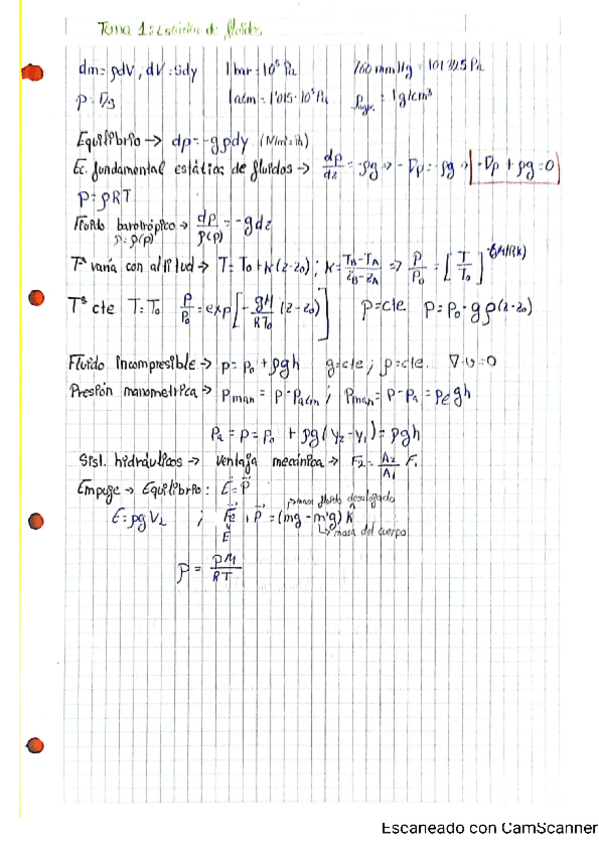 Tema 1: Estática de fluidos
dm = ρdV, dV = Sdy   1 bar = 10⁵ Pa   760 mmHg = 101325 Pa
1 atm = 1'015·10⁵ Pa   = 1g/cm³
Equilibrio → dp = -gρdy (N/m²=Pa)
Ec. fundamental estática de fluidos → dp/dz = -ρg → -∇p = -ρg → -∇p + ρg = 0
p = ρRT
Fluido barotrópico → dp/ρ(p) = -gdz
ρ = ρ(p)
Tª varía con altitud → T = T₀ + K(z-z₀) ; K = (T_B - T_A)/(z_B - z_A) => P/P₀ = [T/T₀]^(-gM/(RK))
Tª cte T = T₀ P/P₀ = exp[-gM/RT₀ (z-z₀)]   ρ = cte P = P₀ - gρ(z-z₀)
Fluido incompresible → p = p₀ + ρgh   g = cte ; ρ = cte. ∇·v = 0
Presión manometrica → Pman = P - Patm ; Pman = P - Pa = ρe gh
Pa = P = P₀ + ρg(y₂-y₁) = ρgh
Sist. hidráulicos → ventaja mecánica → F₂ = A₂/A₁ F₁
Empuje → Equilibrio: E = P
→ masa fluido desalojado
E = ρgV₂ ; Fe + P = (mg - m'g) k
E
↳ masa del cuerpo
ρ = PM/RT
Escaneado con CamScanner